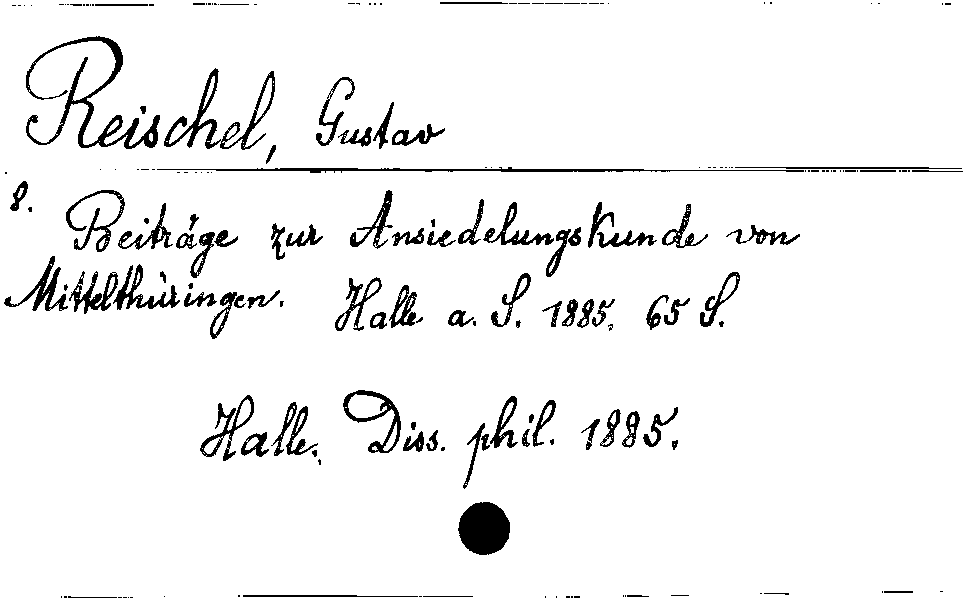 Reischel, Gustav
8.
Beiträge zur Ansiedelungskunde von
Mittelthüringen. Halle a. S. 1885. 65 S.
Halle. Diss. phil. 1885.